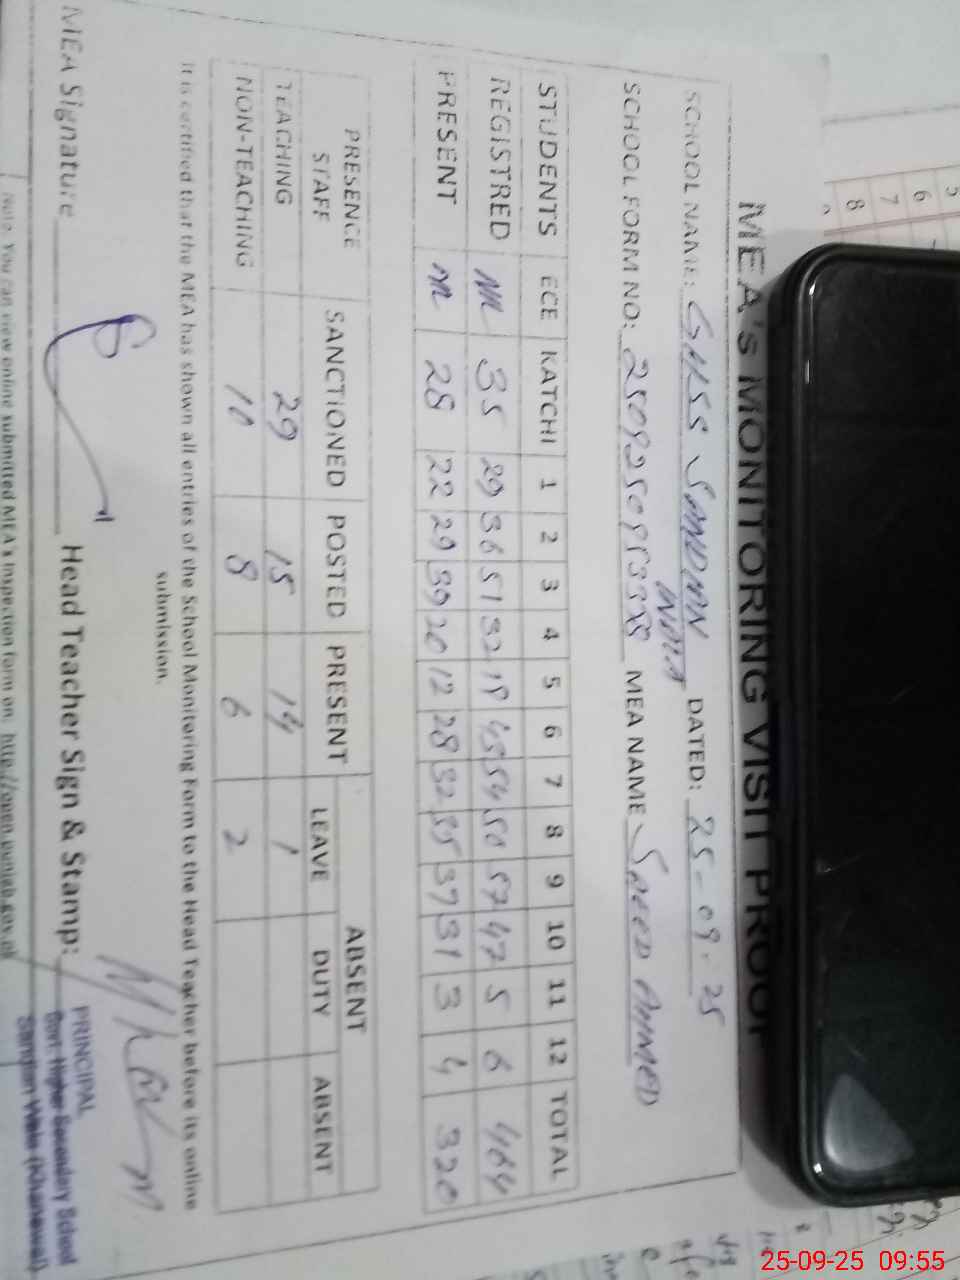 MEA's MONITORING VISIT PROOF
SCHOOL NAME: GHSS SANDHAN WALA DATED: 25-09-25
SCHOOL FORM NO: MEA NAME SAEED AHMED
STUDENTS ECE KATCHI 1 2 3 4 5 6 7 8 9 10 11 12 TOTAL
REGISTRED 35 29 36 51 32 18 45 54 50 57 47 5 6
PRESENT 28 22 29 39 20 12 28 32 35 37 31 3 4 320
PRESENCE STAFF SANCTIONED POSTED PRESENT ABSENT
LEAVE DUTY ABSENT
TEACHING 29 15 14 1
NON-TEACHING 10 8 6 2
It is certified that the MEA has shown all entries of the School Monitoring Form to the Head Teacher before its online
submission.
MEA Signature Head Teacher Sign & Stamp:
PRINCIPAL
Govt. Higher Secondary School
Sandhan Wala (Khanewal)
Note: You can view online submitted MEA's inspection form on: http://open.punjab.gov.pk
5
6
7
8
25-09-25 09:55